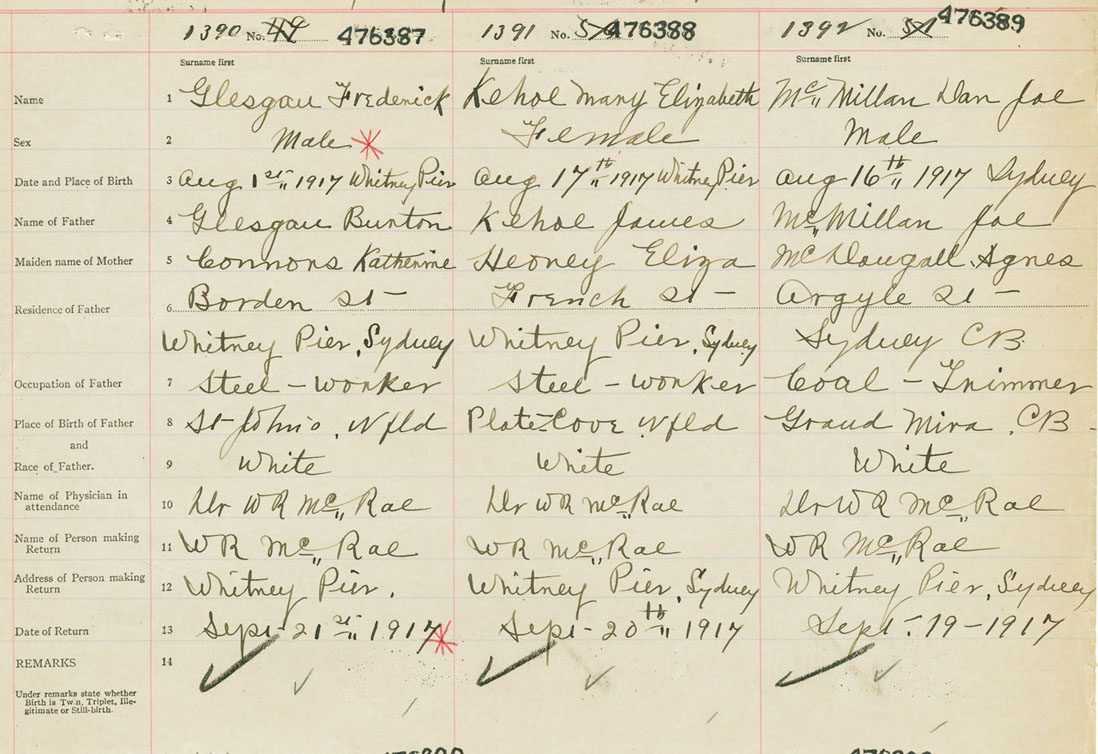 1390 No. 49 476387 1391 No. 50 476388 1392 No. 51 476389
Surname first Surname first Surname first
Name 1 Glesgau Frederick Kehoe Mary Elizabeth McMillan Dan Joe
Sex 2 Male Female Male
Date and Place of Birth 3 Aug 1st 1917 Whitney Pier Aug 17th 1917 Whitney Pier Aug 16th 1917 Sydney
Name of Father 4 Glesgau Burton Kehoe James McMillan Joe
Maiden name of Mother 5 Connors Katherine Heoney Eliza McDougall Agnes
Residence of Father 6 Borden St - French St - Argyle St -
Whitney Pier, Sydney Whitney Pier, Sydney Sydney CB
Occupation of Father 7 Steel - worker Steel - worker Coal - Trimmer
Place of Birth of Father 8 St John's, Nfld Plate Cove Nfld Grand Mira, CB -
and
Race of Father. 9 White White White
Name of Physician in attendance 10 Dr WR McRae Dr WR McRae Dr WR McRae
Name of Person making Return 11 WR McRae WR McRae WR McRae
Address of Person making Return 12 Whitney Pier. Whitney Pier, Sydney Whitney Pier, Sydney
Date of Return 13 Sept - 21st 1917 Sept - 20th 1917 Sept. 19 - 1917
REMARKS 14
Under remarks state whether
Birth is Twin, Triplet, Ille-
gitimate or Still-birth.